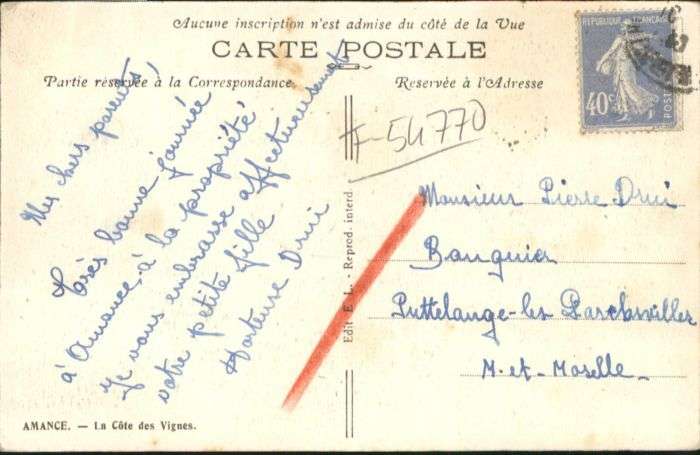 Aucune inscription n'est admise du côté de la Vue
CARTE POSTALE
Partie réservée à la Correspondance
Reservée à l'Adresse
REPUBLIQUE FRANÇAISE
40c
POSTES
F-54770
Mes chers parents,
Très bonne journée
à Amance, à la propriété
Je vous embrasse affectueusement
votre petite fille
Hortense Drui
Edit E. L. - Reprod. interd.
Monsieur Pierre Drui
Banquier
Puttelange-les
M-et-Moselle
AMANCE. — La Côte des Vignes.